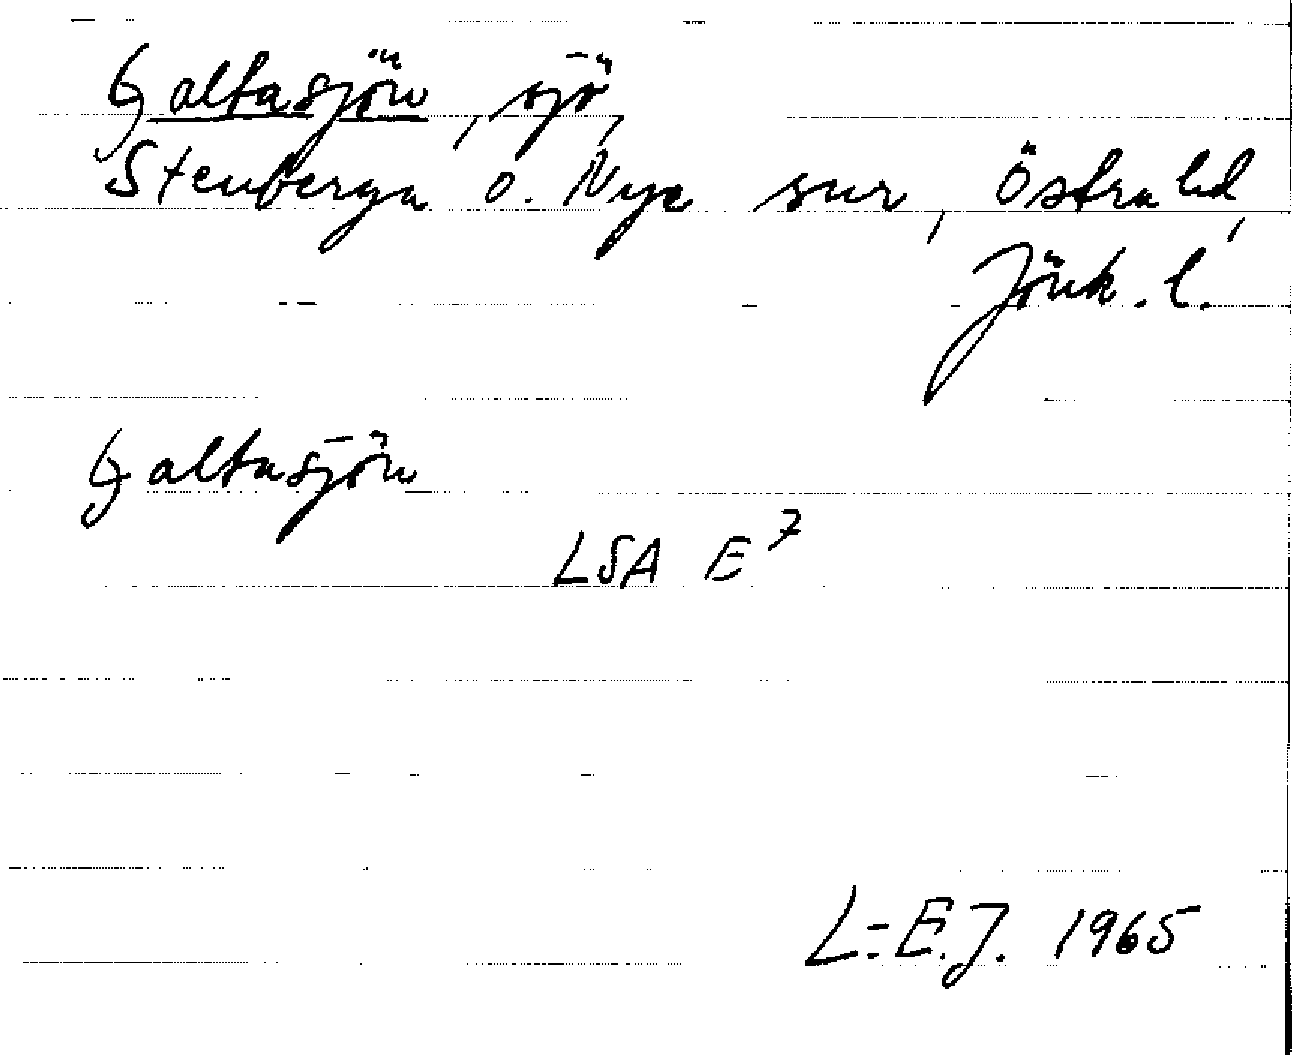 Galtasjön, sjö,
Stenberga o. Nye snr, Östra hd,
Jönk. l.
Galtasjön
LSA E7
L-E.J. 1965